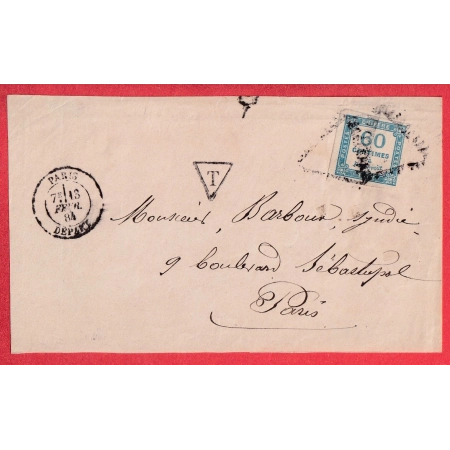 60
CENTIMES
T
PARIS
7E 13
FEVR.
84
DEPART
Monsieur Barbour, Syndic
9 boulevard Sébastopol
Paris